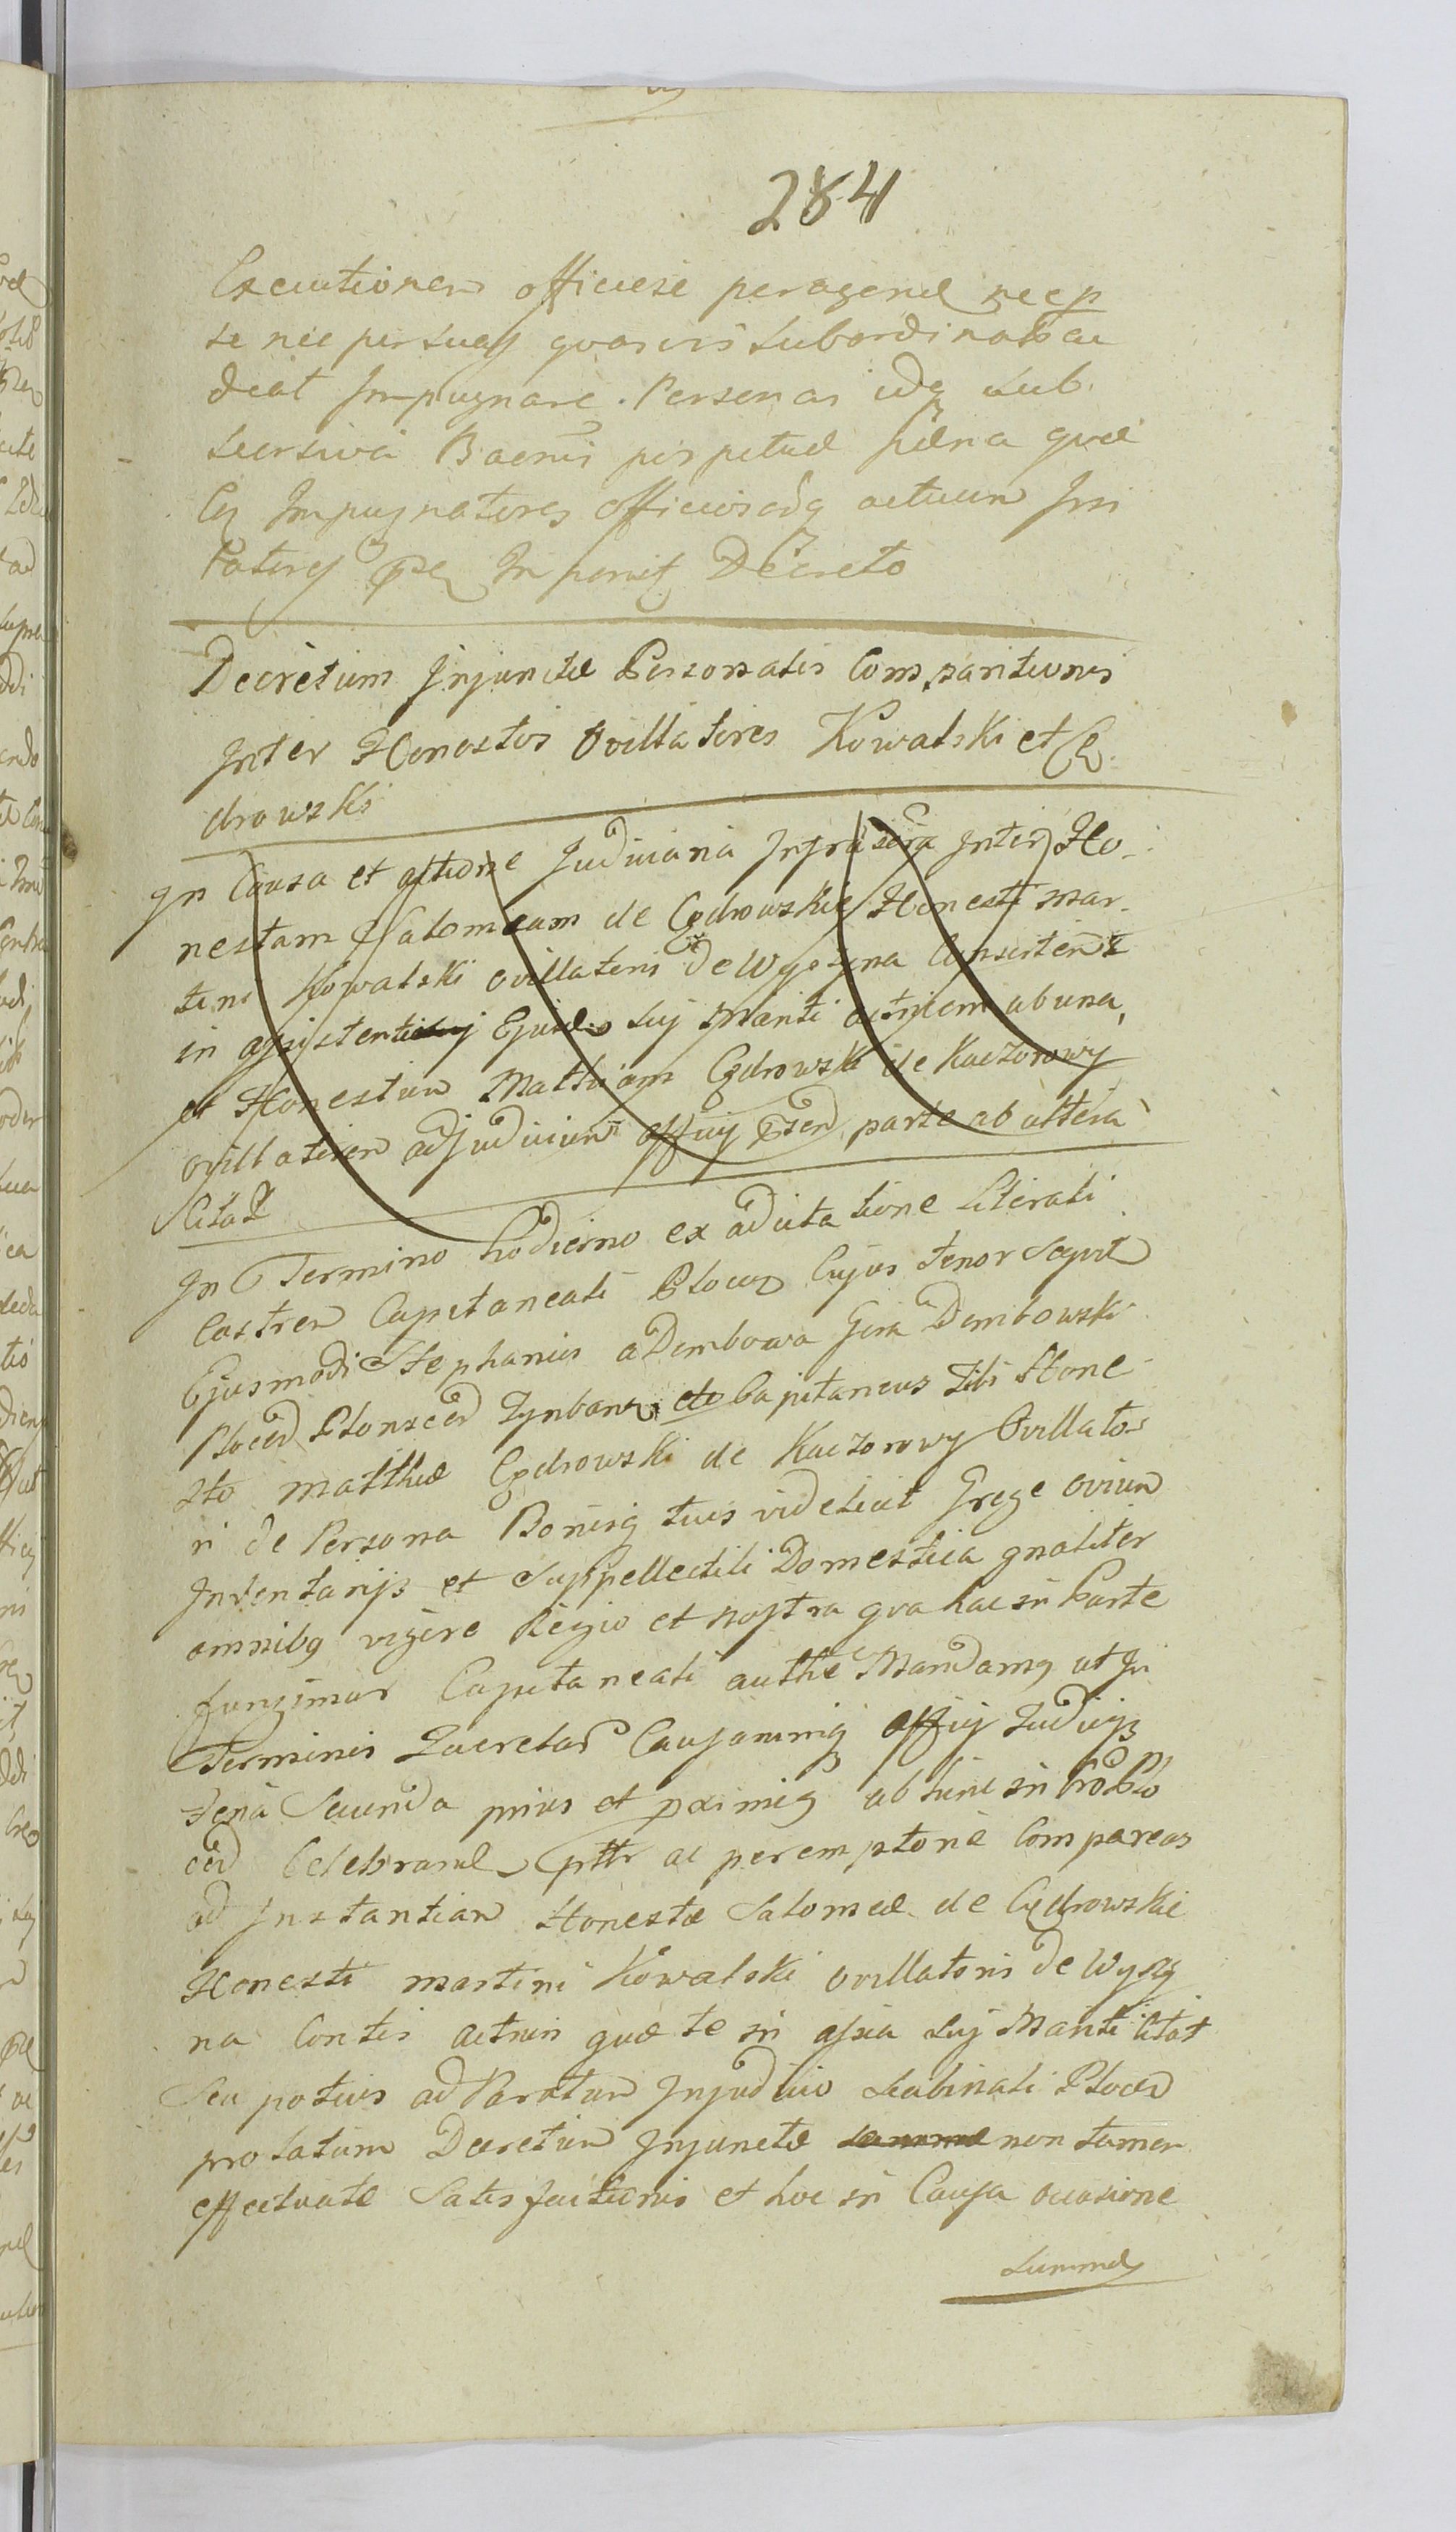 284
Executionem officiose peragend nec p
se nec per suas quasvis subordinatas au
deat Impugnare Personas idq sub
secursiva Bacnis perpetuæ pæna quæ
Impugnatores officiosadq actuum Jni
patores Inponit Decreto
Decretum Injunctæ Personalis Comparitionis
Inter Honestos Ovillatores Kowalski et Cę
drowski
In Causa et actione Judiciaria Infrascra Inter Ho
nestam Salomeam de Cędrowskie Honesti Mar
tini Kowalski ovillatoris de Wyszyna Consorten
in assistentia Ejusd sui Mariti actricem ab una,
et Honestum Mathiam Cędrowski de Kaczorowy
ovillatorem ad Judicium Officii parte ab altera
Citat
In Termino hodierno ex adcitatione Literali
Castren Capitaneali Plocen Cujus tenor Sequit
Ejusmodi Stephanus a Dembowa Gora Dembowski
Plocen Plonscen etc Capitaneus Tibi Hone
sto Mathiæ Cędrowski de Kaczorowy Ovillato
ri de Persona Bonisq tuis videlicet Grege ovium
Inventarijs et Suppellectili Domestica gnaliter
omnibq vigore Regio et nostra qua hac in Parte
fungimur Capitaneali authe Mandamq ut In
Terminis Querelar Causarumq officij Judicijs
Feria Secunda prius et pximis ab hinc in Cro Plo
cen Celebrand pttr ac peremptorie Compareas
ad Instantiam Honestæ Salomeæ de Cędrowskie
Honesti Martini Kowalski ovillatoris de Wyszy
na Contis actricis quæ te in assia sui Mariti Citat
Seu potius ad Paratum In Judicio Scabinali Plocen
prolatum Decretum Injunctæ non tamen
effectuatæ Satisfactionis et hoc in Causa occasione
Summæ